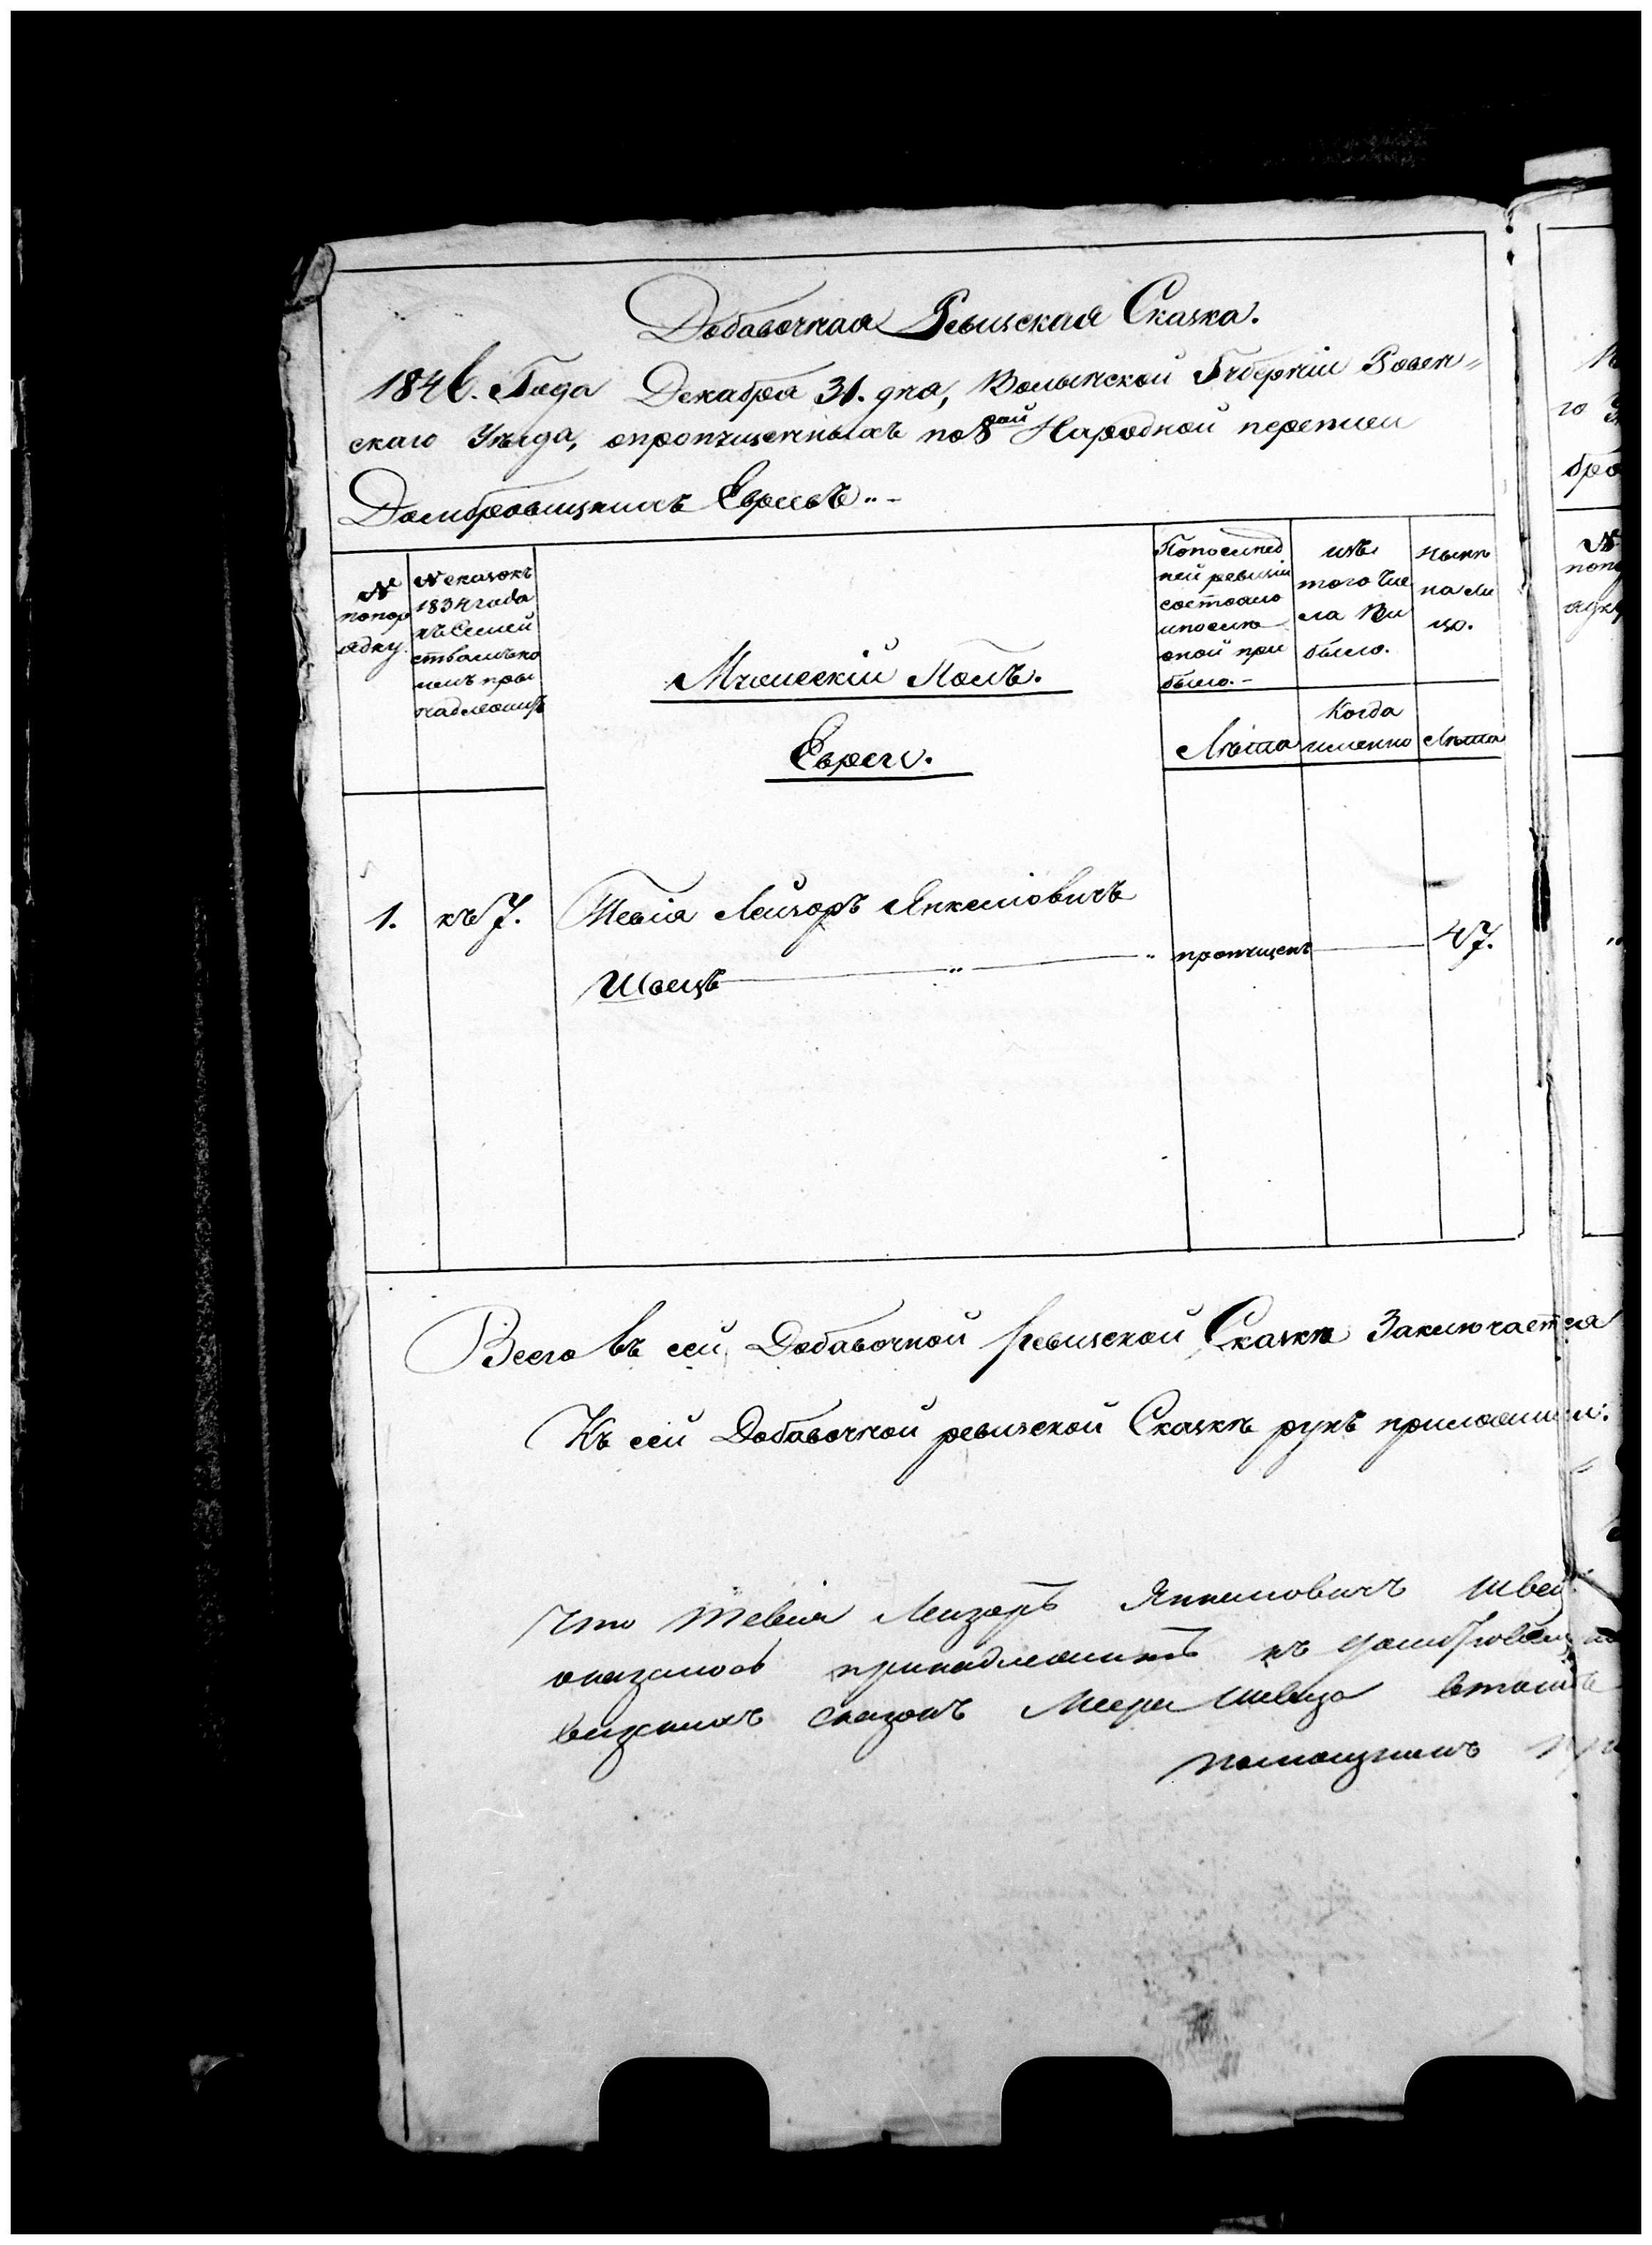 Добавочная Ревизская Сказка.
1846. Года Декабря 31. дня, Волынской Губерніи Ровен=
скаго Уѣзда, опропущенныхъ по 8ой Народной переписи
Домбровицкихъ Евреевъ..-
N
попор
ядку.
N сказокъ
1834 года
къ Семей
ствамъ ко
имъ при
надлежитъ
Мужескій Полъ.
Евреи.
Попослѣд
ней ревизіи
состояло
ипосле
оной при
было.-
изъ
того чис
ла вы
было.
нынѣ
на ли
цо.
Лѣта
Когда
именно
Лѣта
1.
къ 7.
Тевія Лейзоръ Янкеліовичъ
Швецъ
пропущенъ
47.
Всего въ сей Добавочной ревизской Сказкѣ Заключается
Къ сей Добавочной ревизской Сказкѣ рукѣ приложили:
Что Тевія Лейзоръ Янкеліовичъ Швец
оказался принадлежитъ къ
визкихъ сказокъ Меера Швеца
помощникъ
N